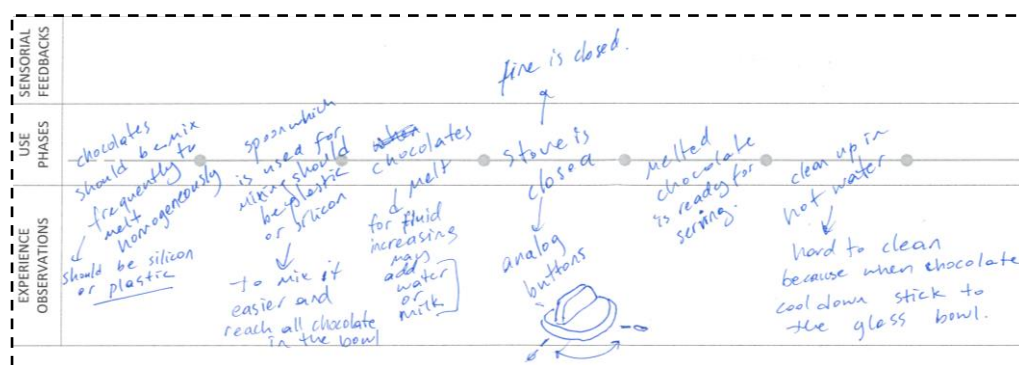 SENSORIAL
FEEDBACKS
fire is closed.
USE
PHASES
chocolates
should be mix
frequently to
melt
homogeneously
should be silicon
or plastic
spoon which
is used for
mixing should
be plastic
or silicon
to mix it
easier and
reach all chocolate
in the bowl
when
chocolates
melt
for fluid
increasing
may
add
water
or
milk
stove is
closed
analog
buttons
melted
chocolate
is ready for
serving.
clean up in
hot water
hard to clean
because when chocolate
cool down stick to
the glass bowl.
EXPERIENCE
OBSERVATIONS